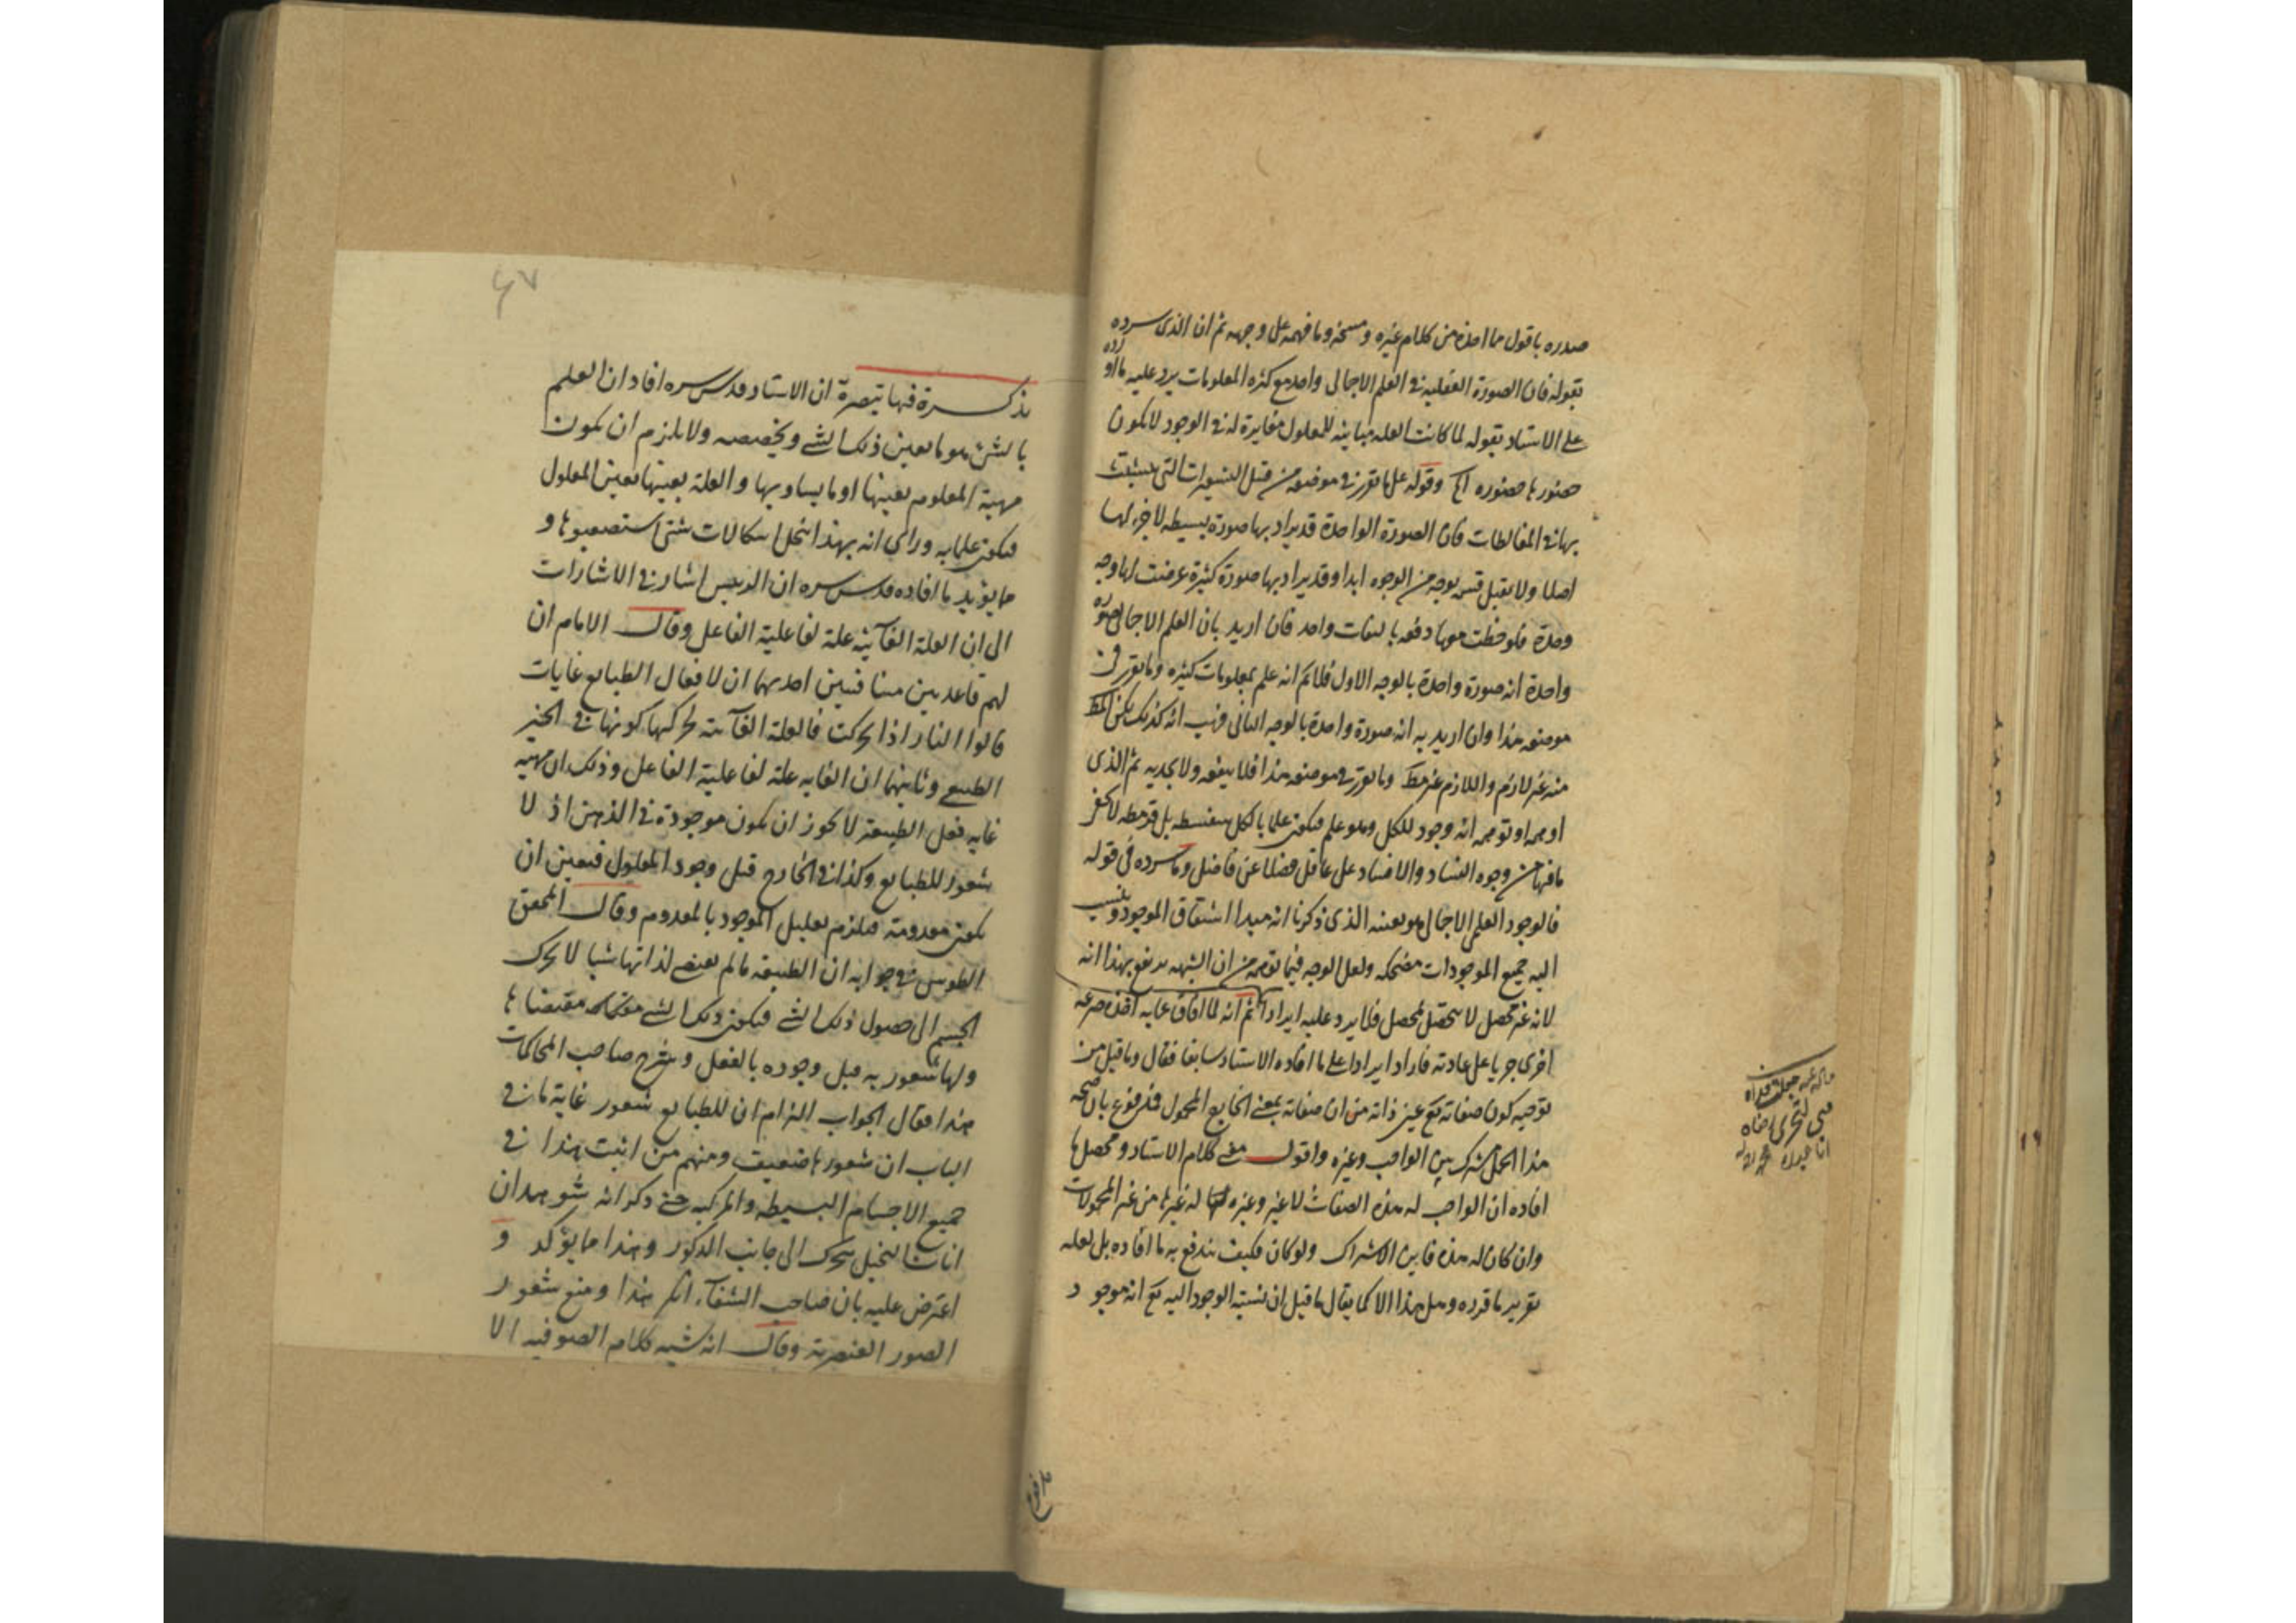 صدره باقول مما اخذه من كلام غيره و مسخه وما فهمه على وجهه ثم ان الذى سرده
بقوله فان الصورة العقلية فى العلم الاجمالى واحد مع كثرة المعلومات يرد عليه ما اورده
على الاستاد بقوله لما كانت العلة مباينة للمعلول مغايرة له فى الوجود لا يكون
حضورها حضوره الخ وقوله على ما تقرر فى موضعه من قبيل التشبيهات التى يتشبث
بها فى المغالطات فان الصورة الواحدة قد يراد بها صورة بسيطه لا جزء لها
اصلا ولا تقبل قسمة بوجه من الوجوه ابدا وقد يراد بها صورة كثيرة عرضت لها وجه
وحدة فلوحظت معها دفعه بالتفات واحد فان اريد بان العلم الاجمالى صوره
واحدة انه صورة واحدة بالوجه الاول فلا نم انه علم بمعلومات كثيره وما تقرر فى
موضعه هذا وان اريد به انه صورة واحدة بالوجه الثانى فهب انه كذلك لكن المط
منه غير لازم واللازم غير مط وما تقرر فى موضعه هذا فلا ينفعه ولا يجديه ثم الذى
اوهمه او توهمه انه وجود للكل وهو علم فيكون علما بالكل سفسطه بل قرمطه لا تخفى
ما فيها من وجوه الفساد والافساد على عاقل فضلا عن فاضل وما سرده فى قوله
فالوجود العلمى الاجمالى هو بعينه الذى ذكرنا انه مبدا اشتقاق الموجود وينسب
اليه جميع الموجودات مضحكه ولعل الوجه فيما توهمه من ان الشبهه يندفع بهذا انه
لانه غير محصل لا يتحصل لمحصل فلا يرد عليه ايراد ثم انه لما افاق عما به اخذه صرعه
اخرى جريا على عادته فاراد ايرادا على ما افاده الاستاد سابقا فقال وما قيل من
توجيه كون صفاته تع عين ذاته من ان صفاته بمعنى الخارج المحمول فمدفوع بان صحه
هذا الحمل مشترك بين الواجب وغيره واقول معنى كلام الاستاد ومحصل ما
افاده ان الواجب له هذه الصفات لا غير وغيره له غيرها من غير المحمولات
وان كان له هذه فاين الاشتراك ولو كان فكيف يندفع به ما افاده بل لعله
تقرير ما قرره وهل هذا الا كما يقال ما قيل ان نسبة الوجود اليه تع انه موجود
تذكرة فيها تبصرة ان الاستاد قدس سره افاد ان العلم
بالشئ هو ما يعين ذلك الشئ ويخصصه ولا يلزم ان يكون
مهية المعلوم بعينها او ما يساويها والعلة بعينها تعين المعلول
فيكون علما به وراى انه بهذا انحل اشكالات شتى استصعبوها و
مما يؤيد ما افاده قدس سره ان الرييس اشار فى الاشارات
الى ان العلة الغآئية علة لفاعلية الفاعل وقال الامام ان
لهم قاعدتين متنافيتين احديهما ان لافعال الطبايع غايات
قالوا النار اذا تحركت فالعلة الغآئية لحركتها كونها فى الحيز
الطبيعى وثانيهما ان الغايه علة لفاعلية الفاعل وذلك ان مهية
غايه فعل الطبيعة لا يجوز ان يكون موجودة فى الذهن اذ لا
شعور للطبايع وكذا فى الخارج قبل وجود المعلول فتعين ان
يكون معدومة فيلزم تعليل الموجود بالمعدوم وقال المحقق
الطوسى فى جوابه ان الطبيعة ما لم يقتض لذاتها شيئا لا يحرك
الجسم الى حصول ذلك الشئ فيكون ذلك الشئ مقتضاها
ولها شعور به قبل وجوده بالفعل وشرح صاحب المحاكمات
هذا فقال الجواب التزام ان للطبايع شعور غاية ما فى
الباب ان شعورها ضعيف ومنهم من اثبت هذا فى
جميع الاجسام البسيطه والمركبه حتى ذكر انه شوهد ان
اناث النخيل يتحرك الى جانب الذكور وهذا مما يؤكد و
اعترض عليه بان صاحب الشفآء انكر هذا ومنع شعور
الصور العنصرية وقال انه شبيه بكلام الصوفيه الا